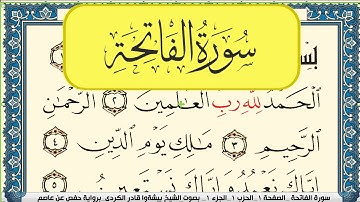 سُورَةُ الفَاتِحَةِ
بِسْ
الْحَمْدُ لِلَّهِ رَبِّ الْعَالَمِينَ ٢ الرَّحْمَنِ
الرَّحِيمِ ٣ مَالِكِ يَوْمِ الدِّينِ ٤
إِيَّاكَ نَعْبُدُ وَإِيَّاكَ نَسْتَعِينُ ٥
سورة الفاتحة . الصفحة ١ . الحزب ١ . الجزء ١ . بصوت الشيخ بيشةوا قادر الكردي . برواية حفص عن عاصم